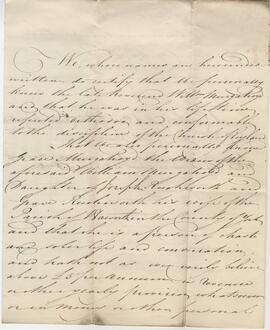 We, whose names are hereunder
written do certify that we personally
knew the late Reverend Willm Musgrave
and that he was in his life time
reputed orthodox and conformable
to the discipline of the Church of England
That we also personally know
Grace Musgrave the Relict of the
aforesaid William Musgrave and
Daughter of Joseph Rushworth and
Grace Rushworth his wife of the
Parish of in the County of York
and that she is a person of chaste
and sober life and conversation
and hath not as we verily believe
above per Annum in Revenue
or other yearly provision whatsoever
or in Money or other personal